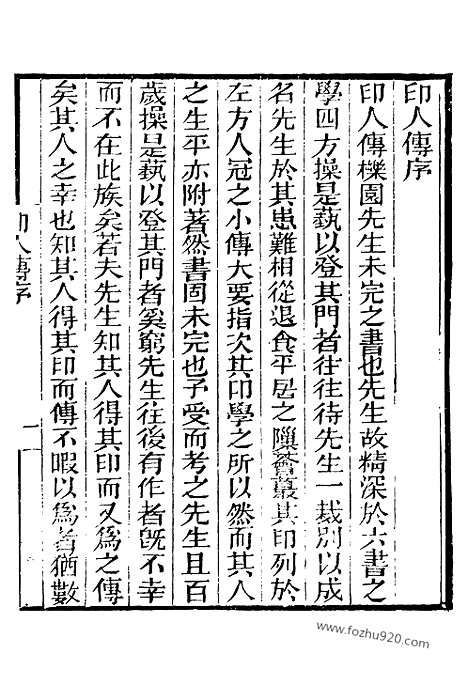 印人傳序
印人傳櫟園先生未完之書也先生故精深於六書之
學四方操是蓺以登其門者往往待先生一裁別以成
名先生於其患難相從退食平居之隟薈蕞其印列於
左方人冠之小傳大要指次其印學之所以然而其人
之生平亦附著然書固未完也予受而考之先生且百
歲操是蓺以登其門者奚窮先生往後有作者旣不幸
而不在此族矣若夫先生知其人得其印而又爲之傳
矣其人之幸也知其人得其印而傳不暇以爲者猶數
印人傳序
一
www.fozhu920.com